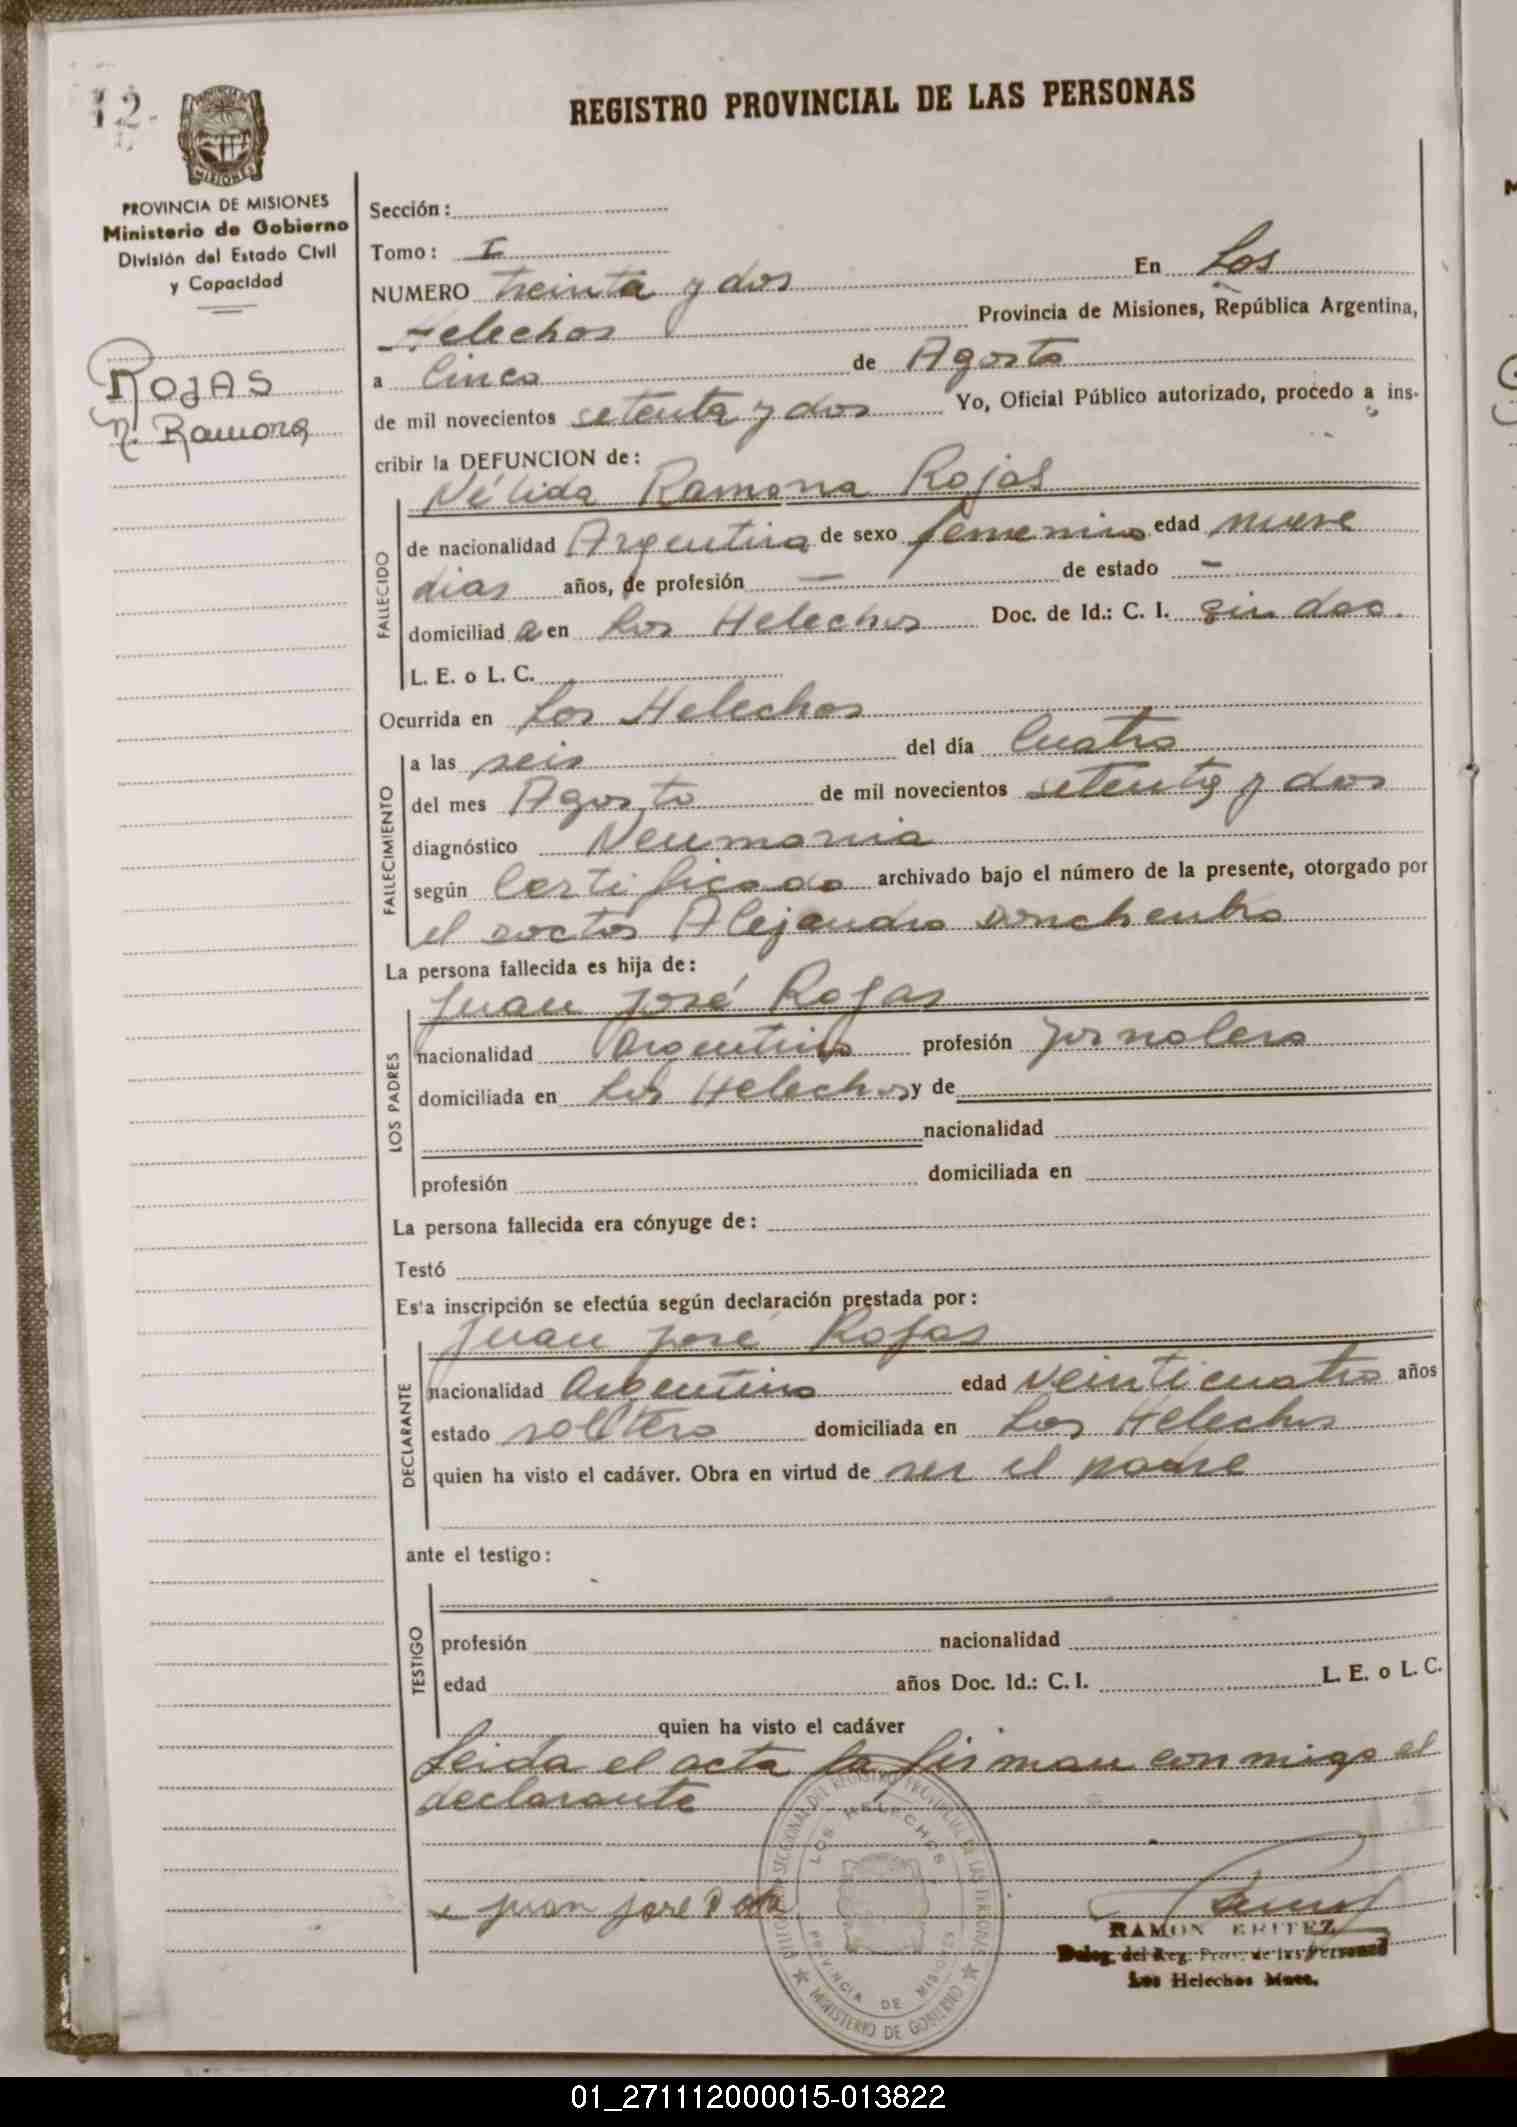 12.
REGISTRO PROVINCIAL DE LAS PERSONAS
PROVINCIA DE MISIONES
Ministerio de Gobierno
División del Estado Civil
y Capacidad
ROJAS
N. Ramona
Sección:
Tomo: I
NUMERO treinta y dos En Los
Helechos Provincia de Misiones, República Argentina,
a Cinco de Agosto
de mil novecientos setenta y dos Yo, Oficial Público autorizado, procedo a ins-
cribir la DEFUNCION de:
Nélida Ramona Rojas
FALLECIDO
de nacionalidad Argentina de sexo femenino edad nueve
dias años, de profesión — de estado —
domiciliad a en Los Helechos Doc. de Id.: C. I. sin doc.
L. E. o L. C.
Ocurrida en Los Helechos
FALLECIMIENTO
a las seis del día Cuatro
del mes Agosto de mil novecientos setenta y dos
diagnóstico Neumonia
según Certificado archivado bajo el número de la presente, otorgado por
el doctor Alejandro
La persona fallecida es hija de:
Juan José Rojas
LOS PADRES
nacionalidad Argentino profesión jornalero
domiciliada en Los Helechos y de
nacionalidad
profesión domiciliada en
La persona fallecida era cónyuge de:
Testó
Esta inscripción se efectúa según declaración prestada por:
Juan José Rojas
DECLARANTE
nacionalidad Argentino edad veinticuatro años
estado soltero domiciliada en Los Helechos
quien ha visto el cadáver. Obra en virtud de ser el padre
ante el testigo:
TESTIGO
profesión nacionalidad
edad años Doc. Id.: C. I. L. E. o L. C.
quien ha visto el cadáver
Leida el acta la firman conmigo el
declarante
Juan jose
SECCIONAL DEL REGISTRO PROVINCIAL DE LAS PERSONAS
LOS HELECHOS
PROVINCIA DE MISIONES
MINISTERIO DE GOBIERNO
RAMON
Deleg. del Reg. Prov. de las Personas
Los Helechos Mnes.
01_271112000015-013822